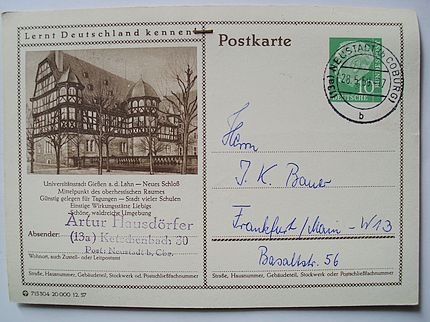 Lernt Deutschland kennen
Universitätsstadt Gießen a. d. Lahn — Neues Schloß
Mittelpunkt des oberhessischen Raumes
Günstig gelegen für Tagungen — Stadt vieler Schulen
Einstige Wirkungsstätte Liebigs
Schöne, waldreiche Umgebung
Artur Hausdörfer
Absender: (13a) Ketschenbach 30
Post: Neustadt b. Cbg.
Wohnort, auch Zustell- oder Leitpostamt
Straße, Hausnummer, Gebäudeteil, Stockwerk od. Postschließfachnummer
715 304 20 000 12. 57
Postkarte
NEUSTADT b COBURG
28.5.
b
10
Herrn
J. K. Bauer
Frankfurt / Main - W13
Basaltstr. 56
Straße, Hausnummer, Gebäudeteil, Stockwerk oder Postschließfachnummer